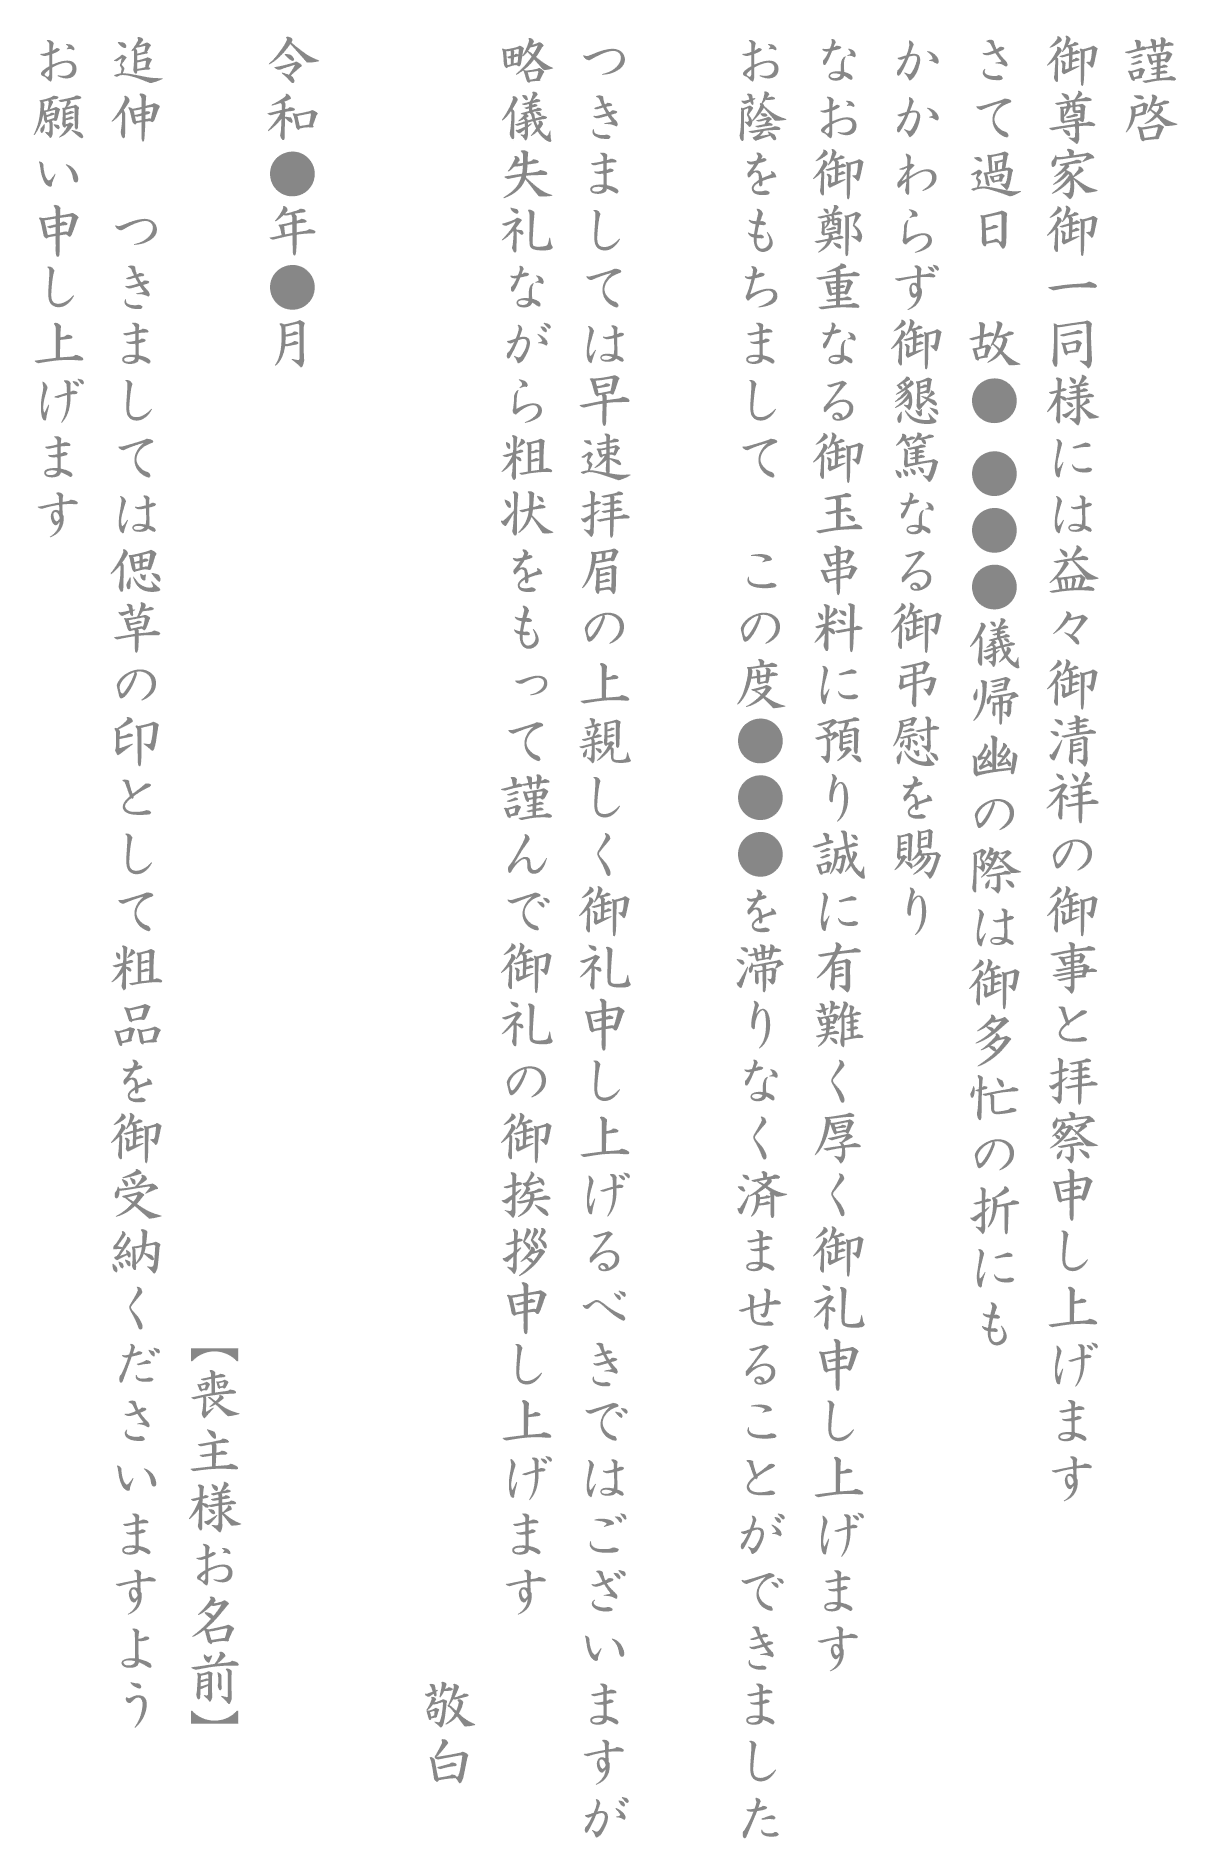 謹啓
御尊家御一同様には益々御清祥の御事と拝察申し上げます
さて過日　故●●●●儀帰幽の際は御多忙の折にも
かかわらず御懇篤なる御弔慰を賜り
なお御鄭重なる御玉串料に預り誠に有難く厚く御礼申し上げます
お蔭をもちまして　この度●●●を滞りなく済ませることができました
つきましては早速拝眉の上親しく御礼申し上げるべきではございますが
略儀失礼ながら粗状をもって謹んで御礼の御挨拶申し上げます
敬白
令和●年●月
【喪主様お名前】
追伸　つきましては偲草の印として粗品を御受納くださいますよう
お願い申し上げます